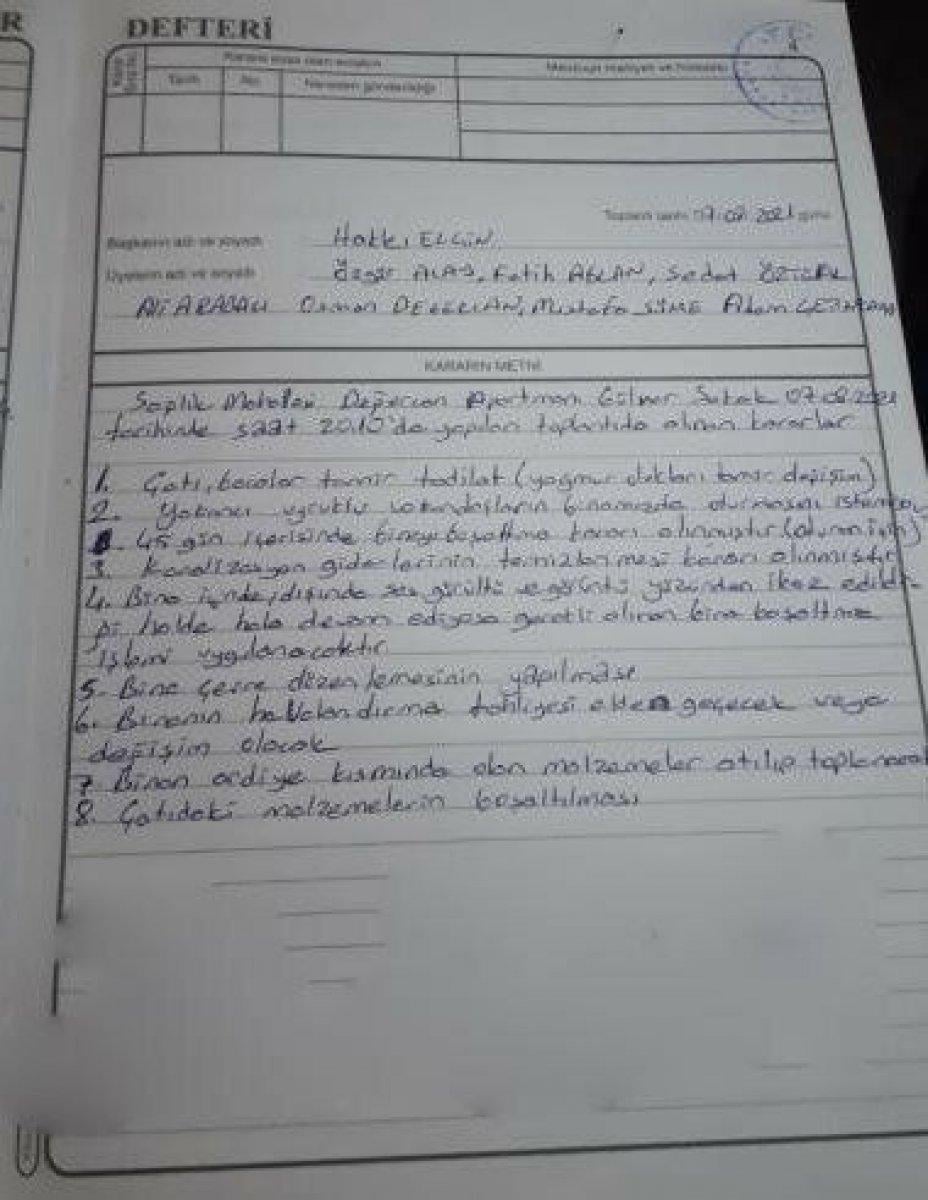 R
DEFTERİ
4
Tarih No Nereden gönderildiği
Toplantı tarihi 07.08.2021 günü
Başkanın adı ve soyadı Hakkı ELGİN
Üyelerin adı ve soyadı Özgür ALAS, Fatih ASLAN, Sedat
Osman Mustafa Adem
KARARIN METNİ
Sağlık Mahallesi Değercan Apartmanı Sokak 07.08.2021
tarihinde saat 20.10'da yapılan toplantıda alınan kararlar
1. Çatı, bacalar tamir tadilat (yağmur olukları tamir değişim)
2. Yabancı uyruklu vatandaşların binamızda oturmasını istemiyoruz
45 gün içerisinde binayı boşaltma kararı alınmıştır (oturan için)
3. Kanalizasyon giderlerinin temizlenmesi kararı alınmıştır
4. Bina içinde, dışında ses gürültü ve görüntü yüzünden ikaz edildi-
ği halde hala devam ediyorsa gerekli alınan bina boşaltma
işlemi uygulanacaktır
5. Bina çevre düzenlemesinin yapılması
6. Binanın havalandırma tahliyesi elden geçecek veya
değişim olacak
7. Binan ardiye kısmında olan malzemeler atılıp toplanacak
8. Çatıdaki malzemelerin boşaltılması